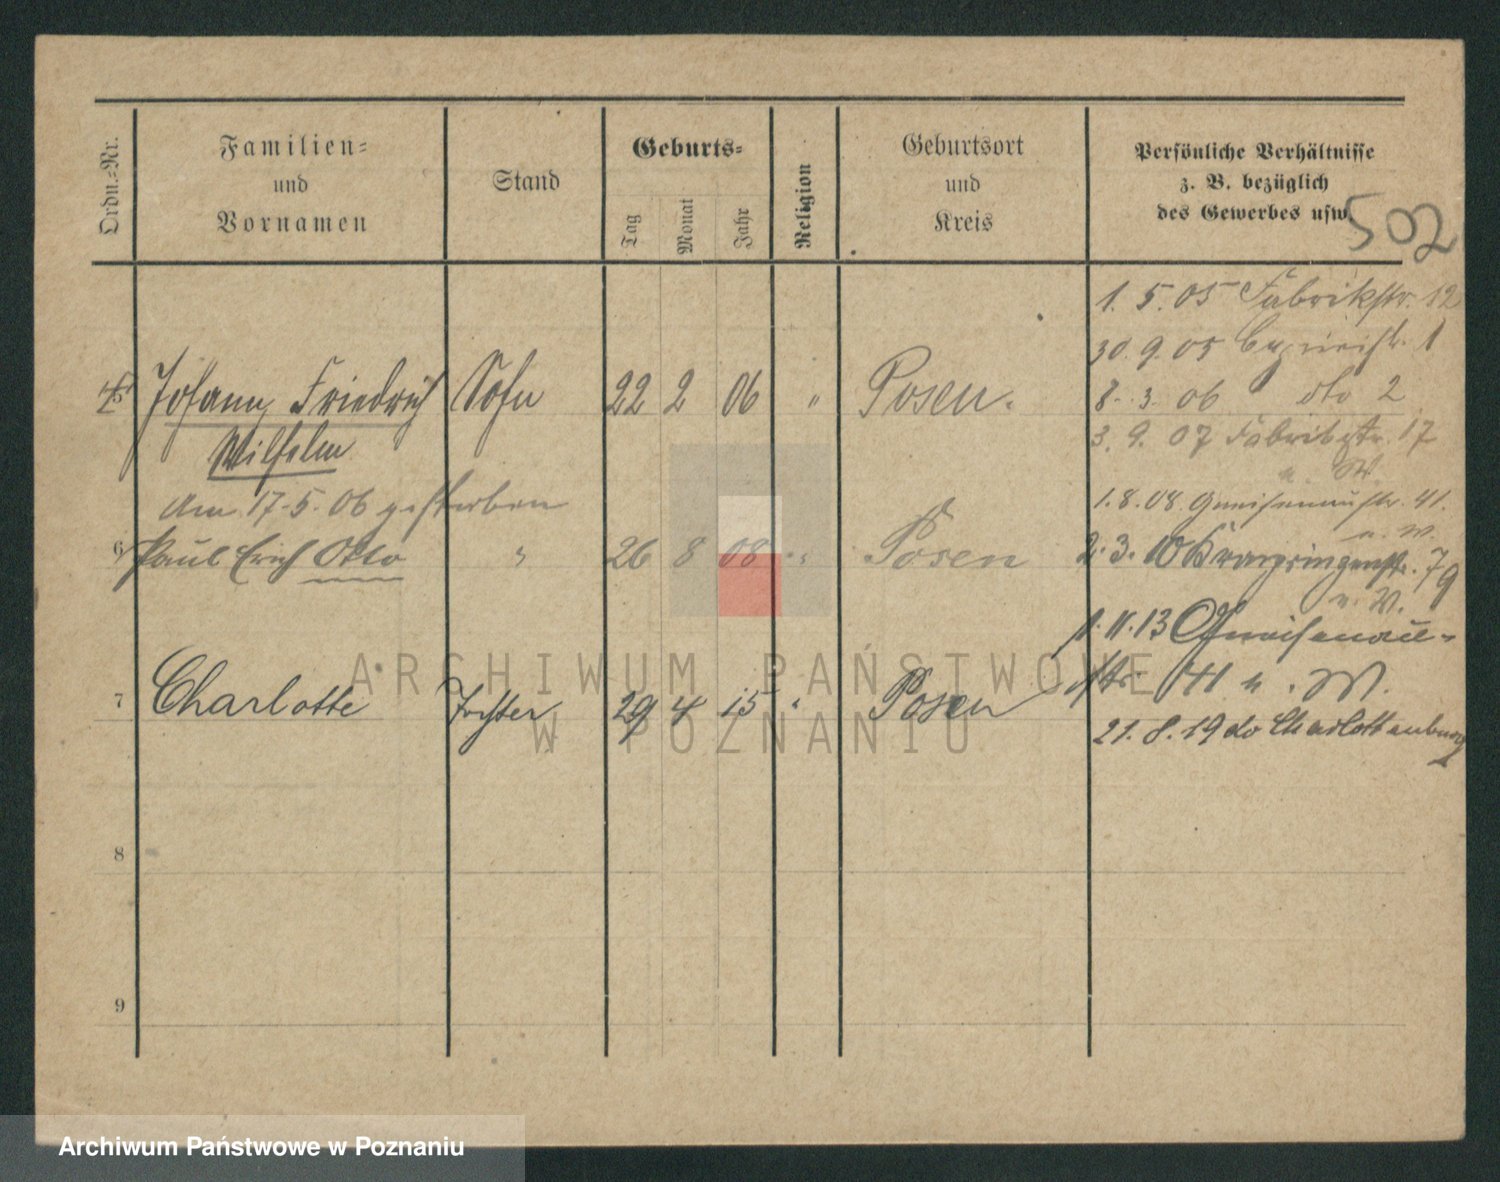 Ordn.=Nr.
Familien=
und
Vornamen
Stand
Geburts=
Tag
Monat
Jahr
Religion
Geburtsort
und
Kreis
Persönliche Verhältnisse
z. B. bezüglich
des Gewerbes usw.
502
1. 5. 05 Fabrikstr. 12
30. 9. 05 1
8. 3. 06 dto 2
3. 9. 07 Fabrikstr. 17
u. W.
1. 8. 08. Gneisenaustr. 41.
u. W.
2. 3. 10 Kronprinzenstr. 79
u. W.
1. 11. 13 Gneisenau-
str. 41 u. W.
21. 8. 19 do Charlottenburg
5 Johann Friedrich Sohn 22 2 06 " Posen.
Wilhelm
Am 17. 5. 06 gestorben
6 Paul Erich Otto " 26 8 08 " Posen
7 Charlotte Tochter 29 4 15 " Posen
8
9
ARCHIWUM PAŃSTWOWE
W POZNANIU
Archiwum Państwowe w Poznaniu